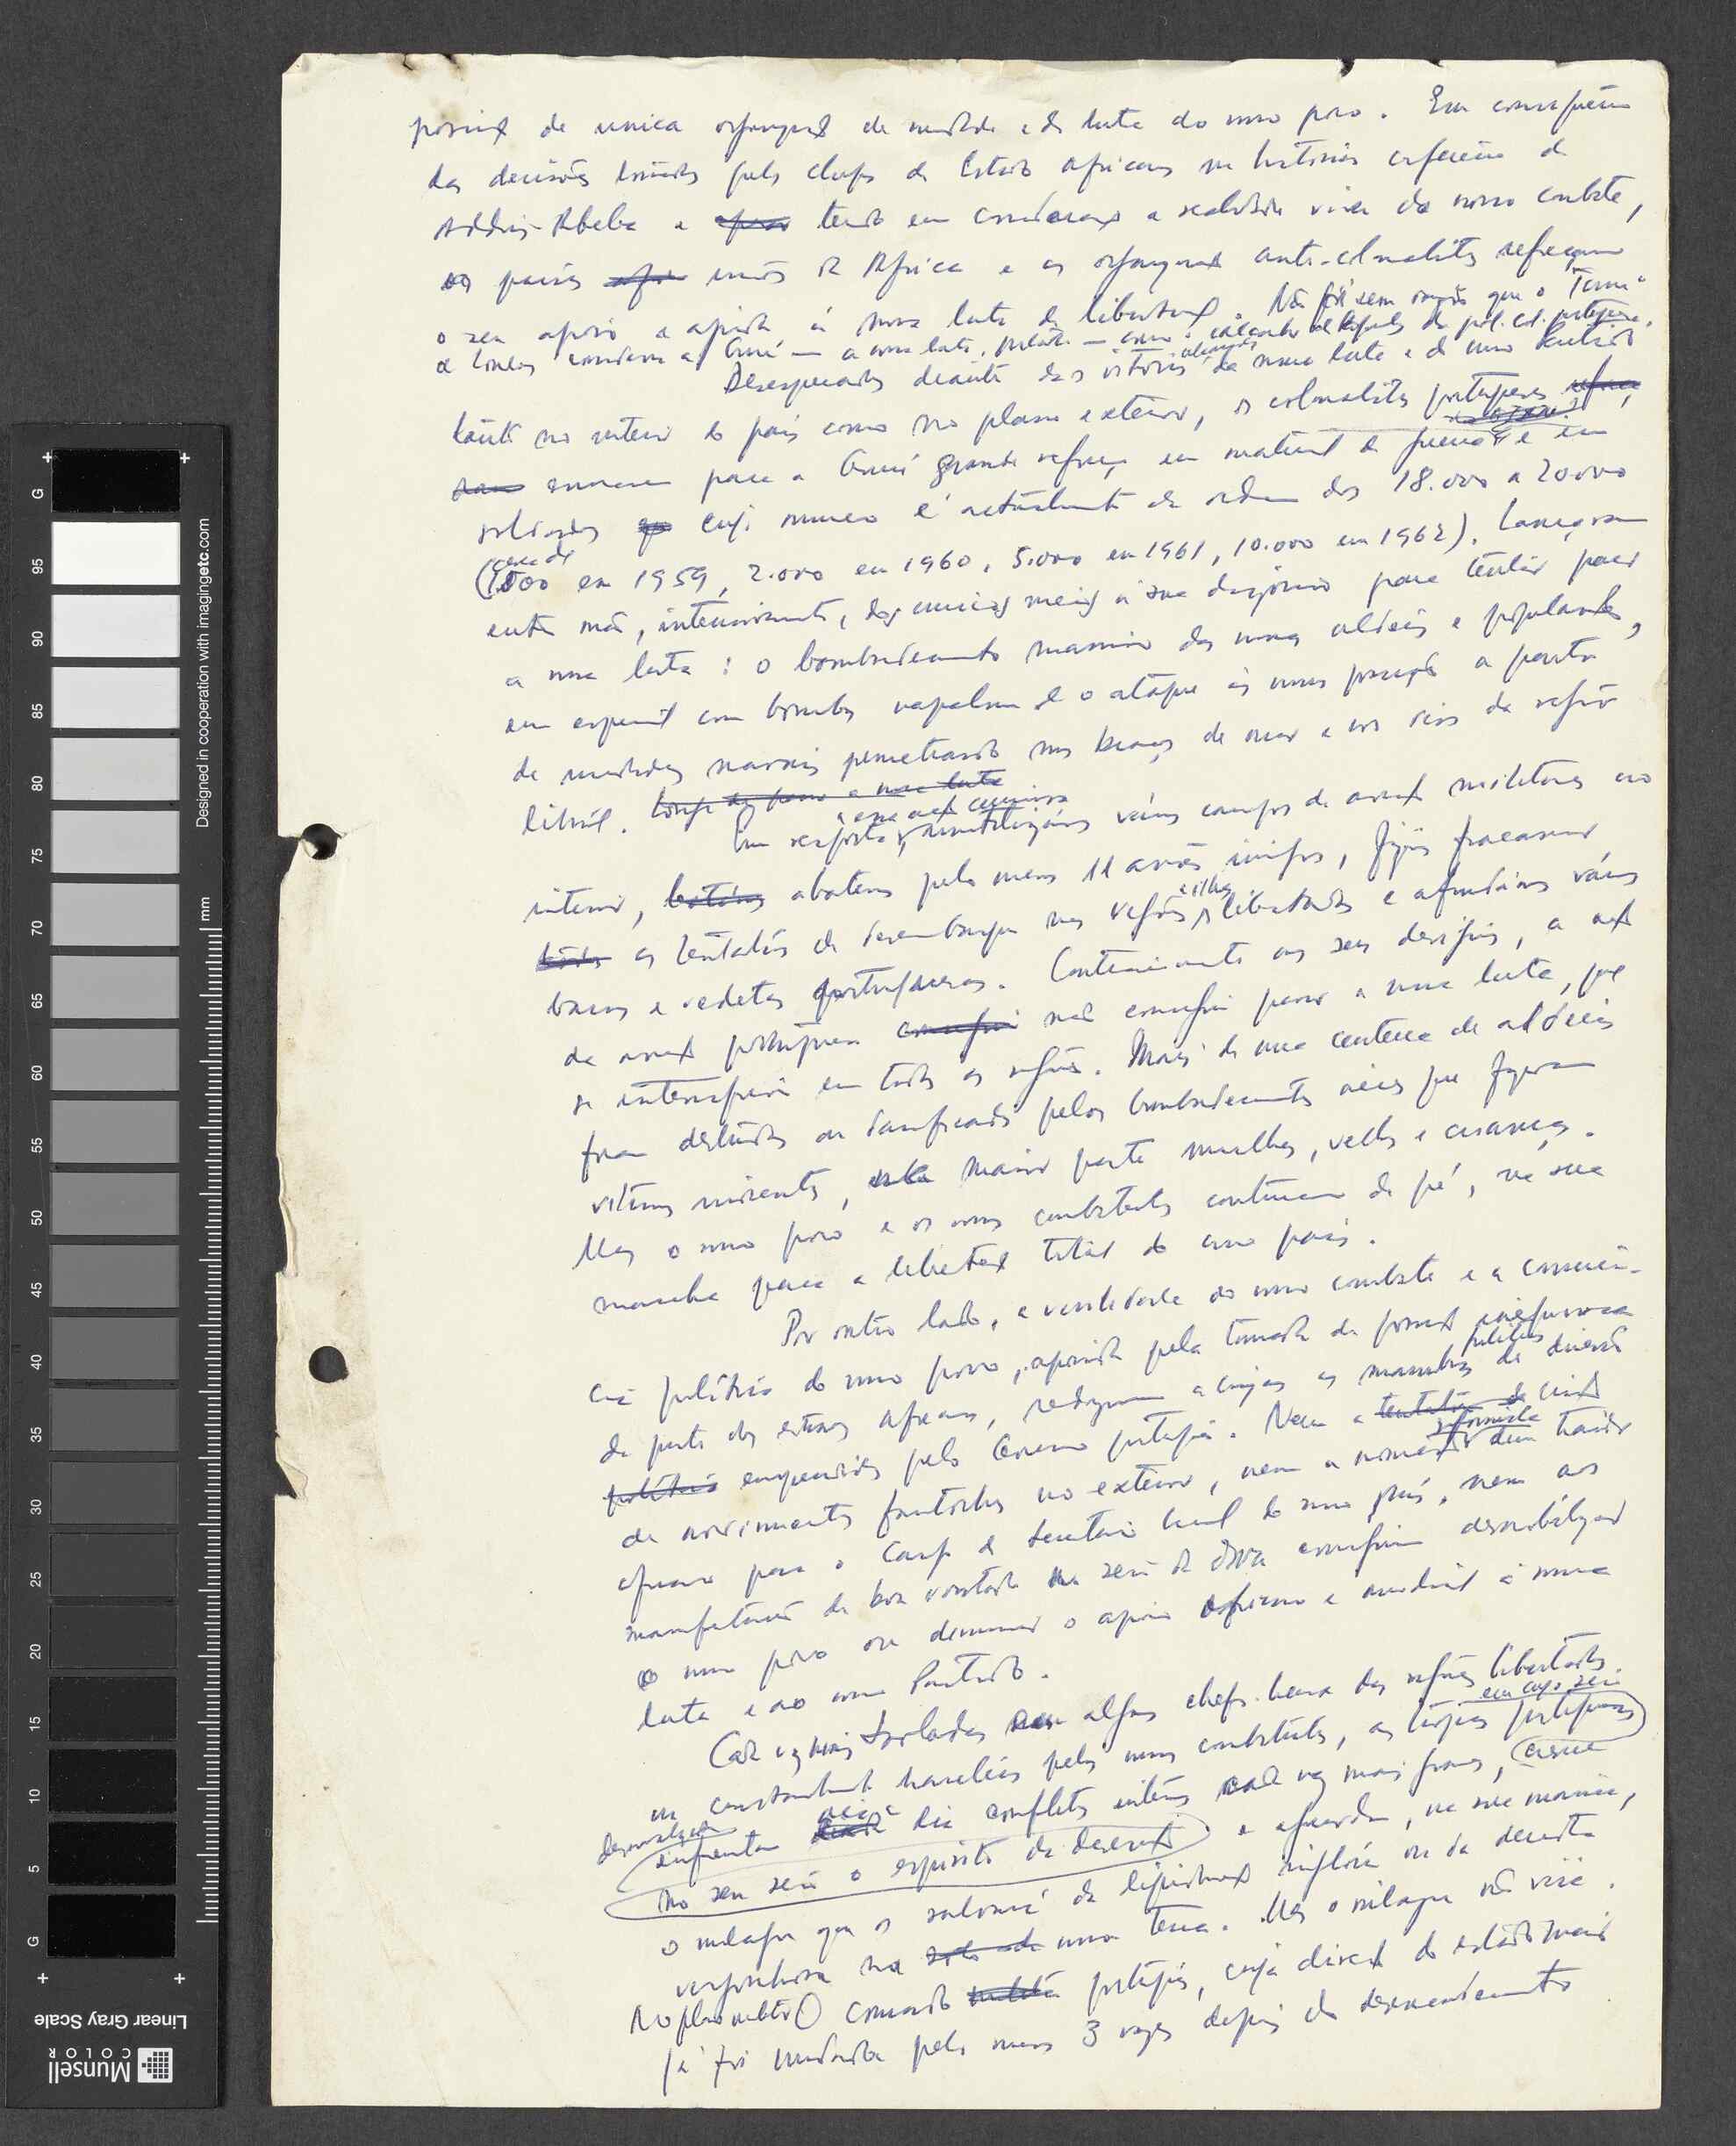 posição de unica organização de unidade e de luta do nosso povo. Em consequência
das decisões tomadas pelos chefes de Estado africanos na historica conferência de
Addis-Abeba e tendo em consideração a realidade viva do nosso combate,
os países irmãos de Africa e as organizações anti-colonialistas reforçaram
o seu apoio e ajuda à nossa luta de libertação. Não foi sem razão que o "Times"
de Londres considerou a Guiné — a nossa luta, portanto — como o calcanhar de Aquiles da pol. col. portuguesa.
Desesperados diante das vitórias alcançadas da nossa luta e do nosso Partido
tanto no interior do país como no plano exterior, os colonialistas portugueses
enviaram para a Guiné grandes reforços em material de guerra e em
soldados cujo numero é actualmente da ordem dos 18.000 a 20000
(cerca de 1000 em 1959, 2.000 em 1960, 5.000 em 1961, 10.000 em 1962). Lançaram
então mão, intensivamente, dos unicos meios à sua disposição para tentar parar
a nossa luta: o bombardeamento massivo das nossas aldeias e populações,
em especial com bombas napalm e o ataque às nossas posições a partir
de unidades navais penetrando nos braços de mar e nos rios da região
litoral.
Em resposta a essa acção criminosa, inutilizámos vários campos de aviação militares no
interior, abatemos pelo menos 11 aviões inimigos, fizemos fracassar
as tentativas de desembarque nas regiões e ilhas libertadas e afundámos vários
barcos e vedetas portugueses. Contrariamente aos seus desígnios, a acção
da aviação portuguesa não conseguiu parar a nossa luta, que
se intensificou em todas as regiões. Mais de uma centena de aldeias
foram destruidas ou danificadas pelos bombardeamentos aéreos que fizeram
vitimas inocentes, na maior parte mulheres, velhos e crianças.
Mas o nosso povo e os nossos combatentes continuam de pé, na sua
marcha para a libertação total do nosso país.
Por outro lado, a realidade do nosso combate e a consciên-
cia política do nosso povo, apoiada pela tomada de posição inequivoca
da parte dos estados africanos, reduziram a cinzas as manobras politicas de diversão
empreendidas pelo Governo português. Nem a criação
de movimentos fantoches no exterior, nem a nomeação reformista dum traidor
africano para o cargo de Secretario Geral do nosso país, nem as
manifestações de boa vontade no seio da ONU conseguiram desmobilizar
o nosso povo ou diminuir o apoio africano e mundial à nossa
luta e ao nosso Partido.
Cada vez mais isoladas em alguns chefs-lieux das regiões libertadas
e constantemente hostilizadas pelos nossos combatentes, as tropas portuguesas em cujo seio
enfrentam dia a dia conflitos internos cada vez mais graves, cresce
no seu seio o espirito de deserção e aguardam, na sua maioria,
o milagre que os salvará da liquidação inglória ou da derrota
vergonhosa na nossa terra. Mas o milagre não virá.
No plano militar O comando português, cuja direcção do estado maior
já foi mudada pelo menos 3 vezes depois do desencadeamento